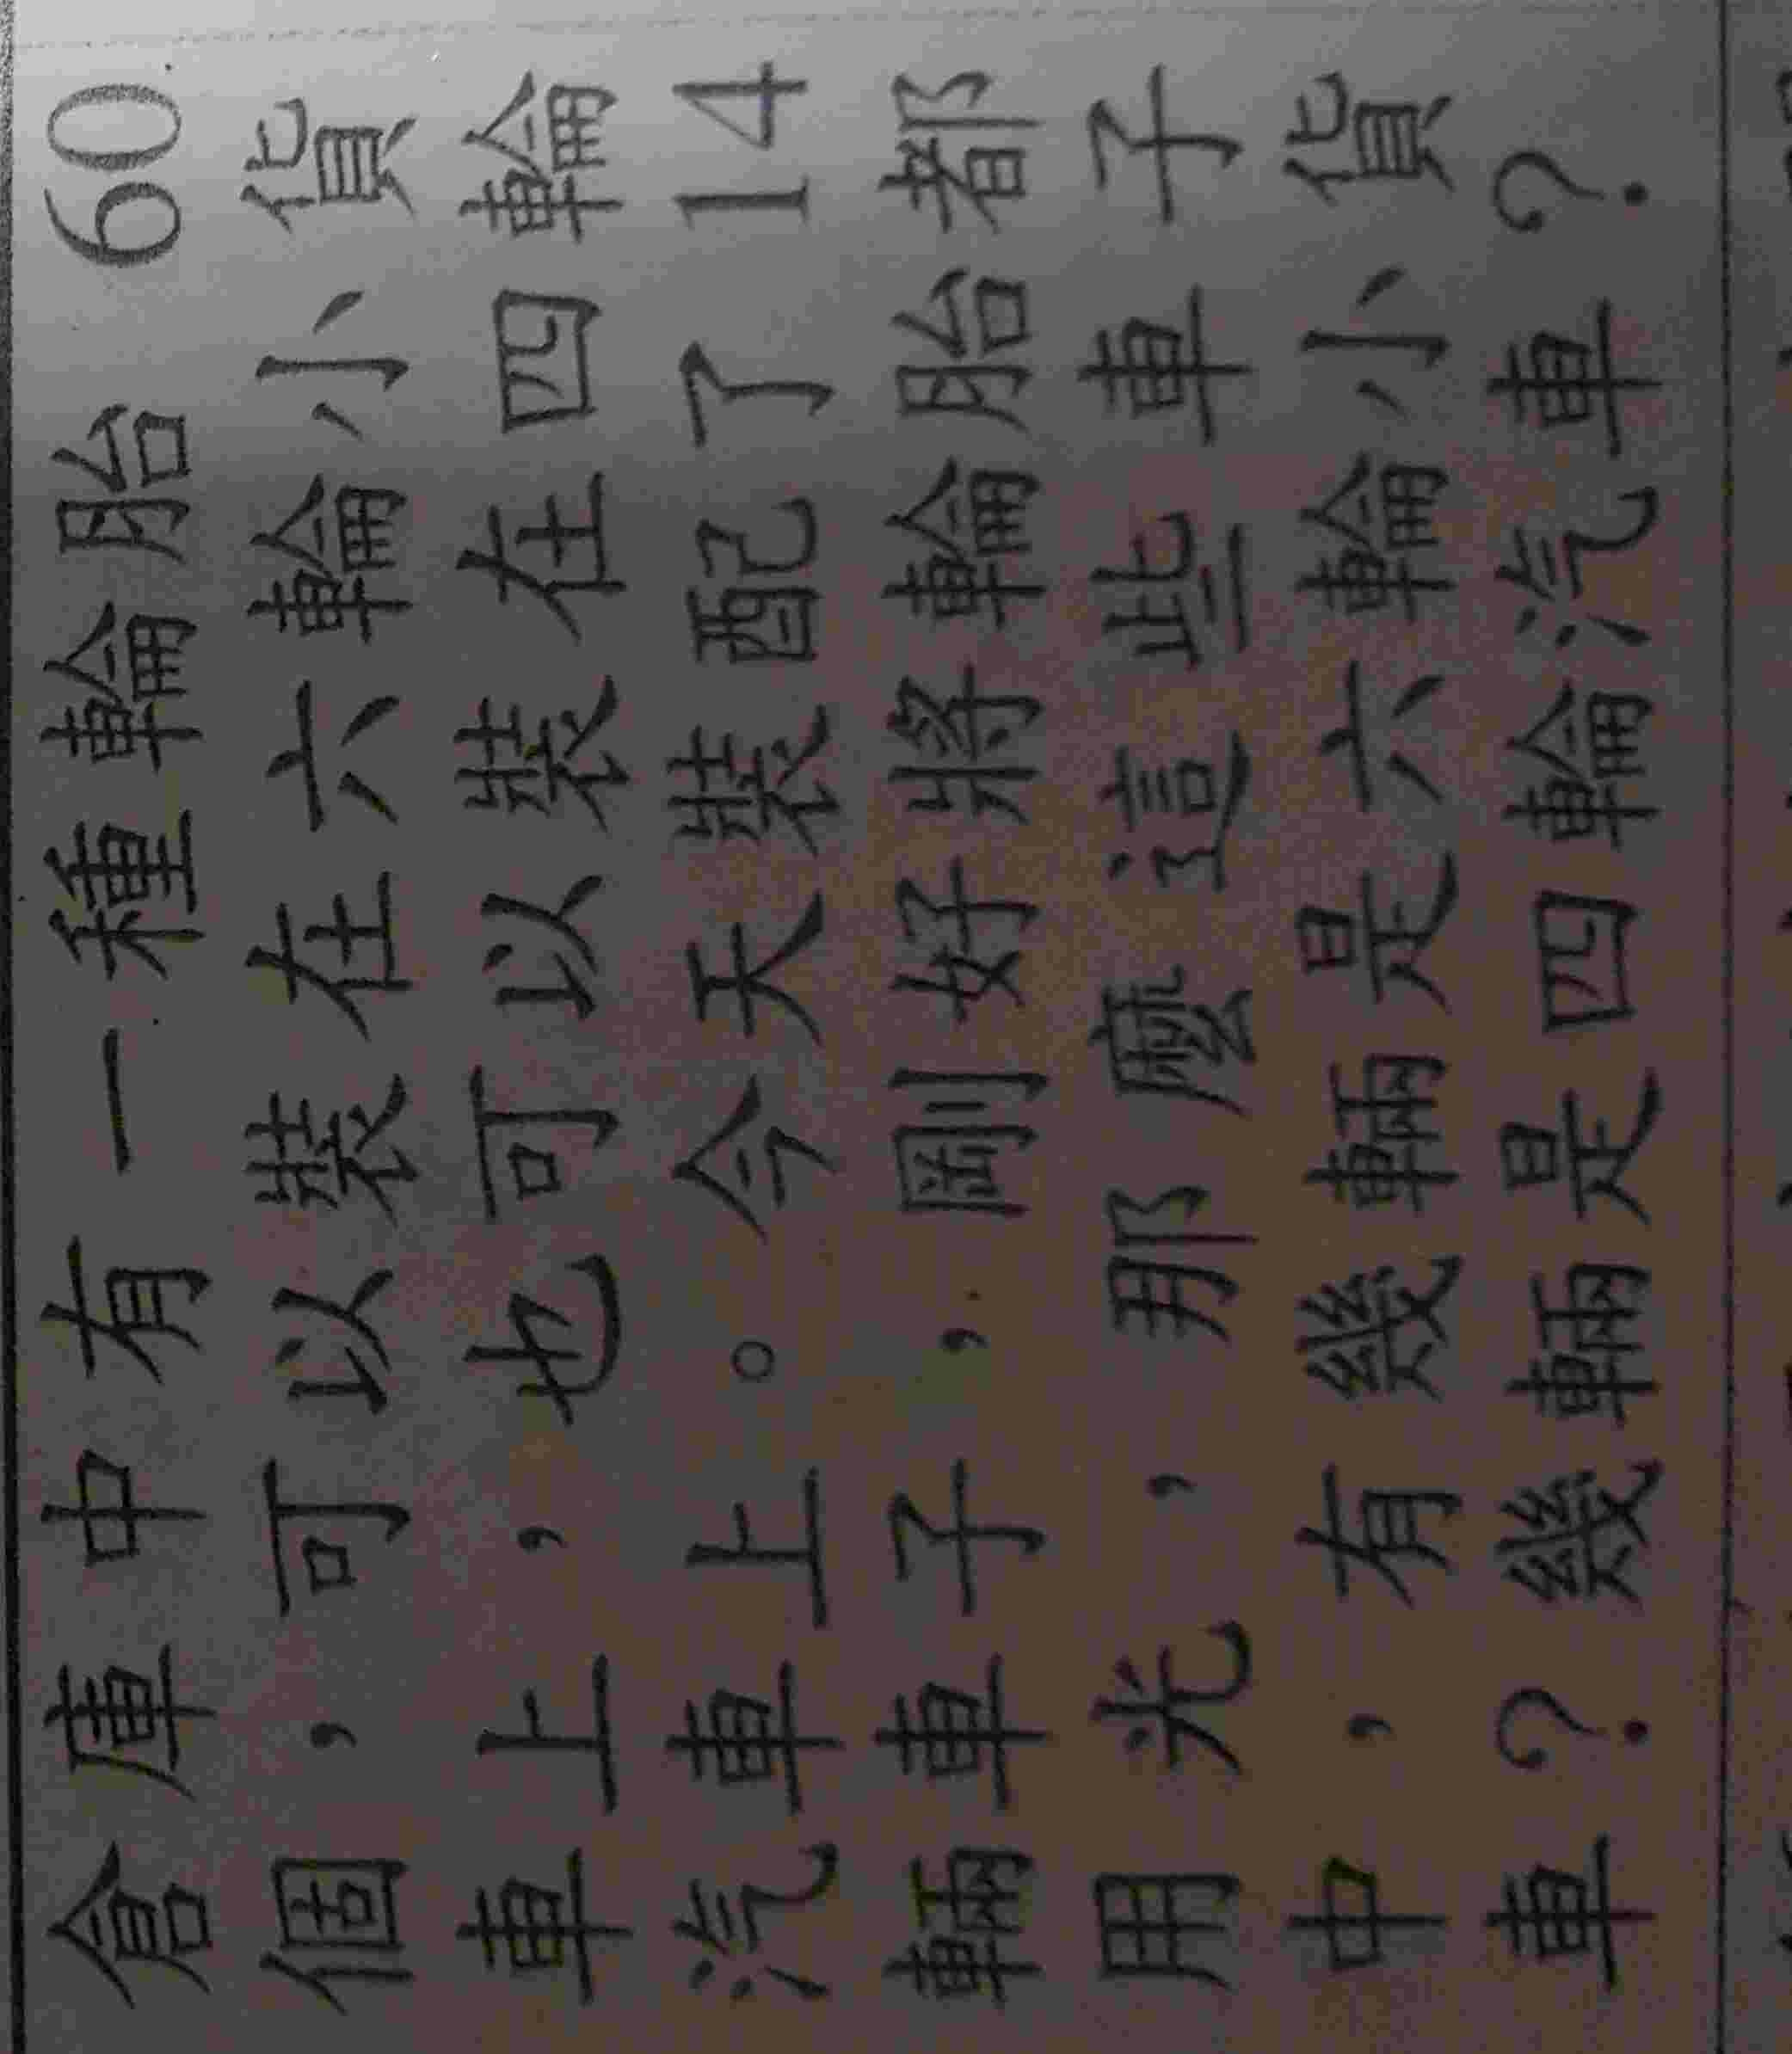 倉庫中有一種輪胎60
個，可以裝在六輪小貨
車上，也可以裝在四輪
汽車上。今天裝配了14
輛車子，剛好將輪胎都
用光，那麼這些車子
中，有幾輛是六輪小貨
車？幾輛是四輪汽車？